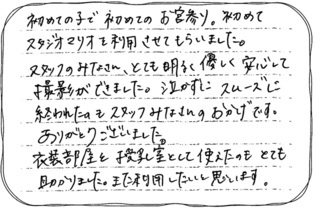 初めての子で初めてのお宮参り。初めて
スタジオマリオを利用させてもらいました。
スタッフのみなさん、とても明るく優しく安心して
撮影ができました。泣かずにスムーズに
終われたのもスタッフみなさんのおかげです。
ありがとうございました。
衣装部屋を授乳室として使えたのもとても
助かりました。また利用したいと思います。